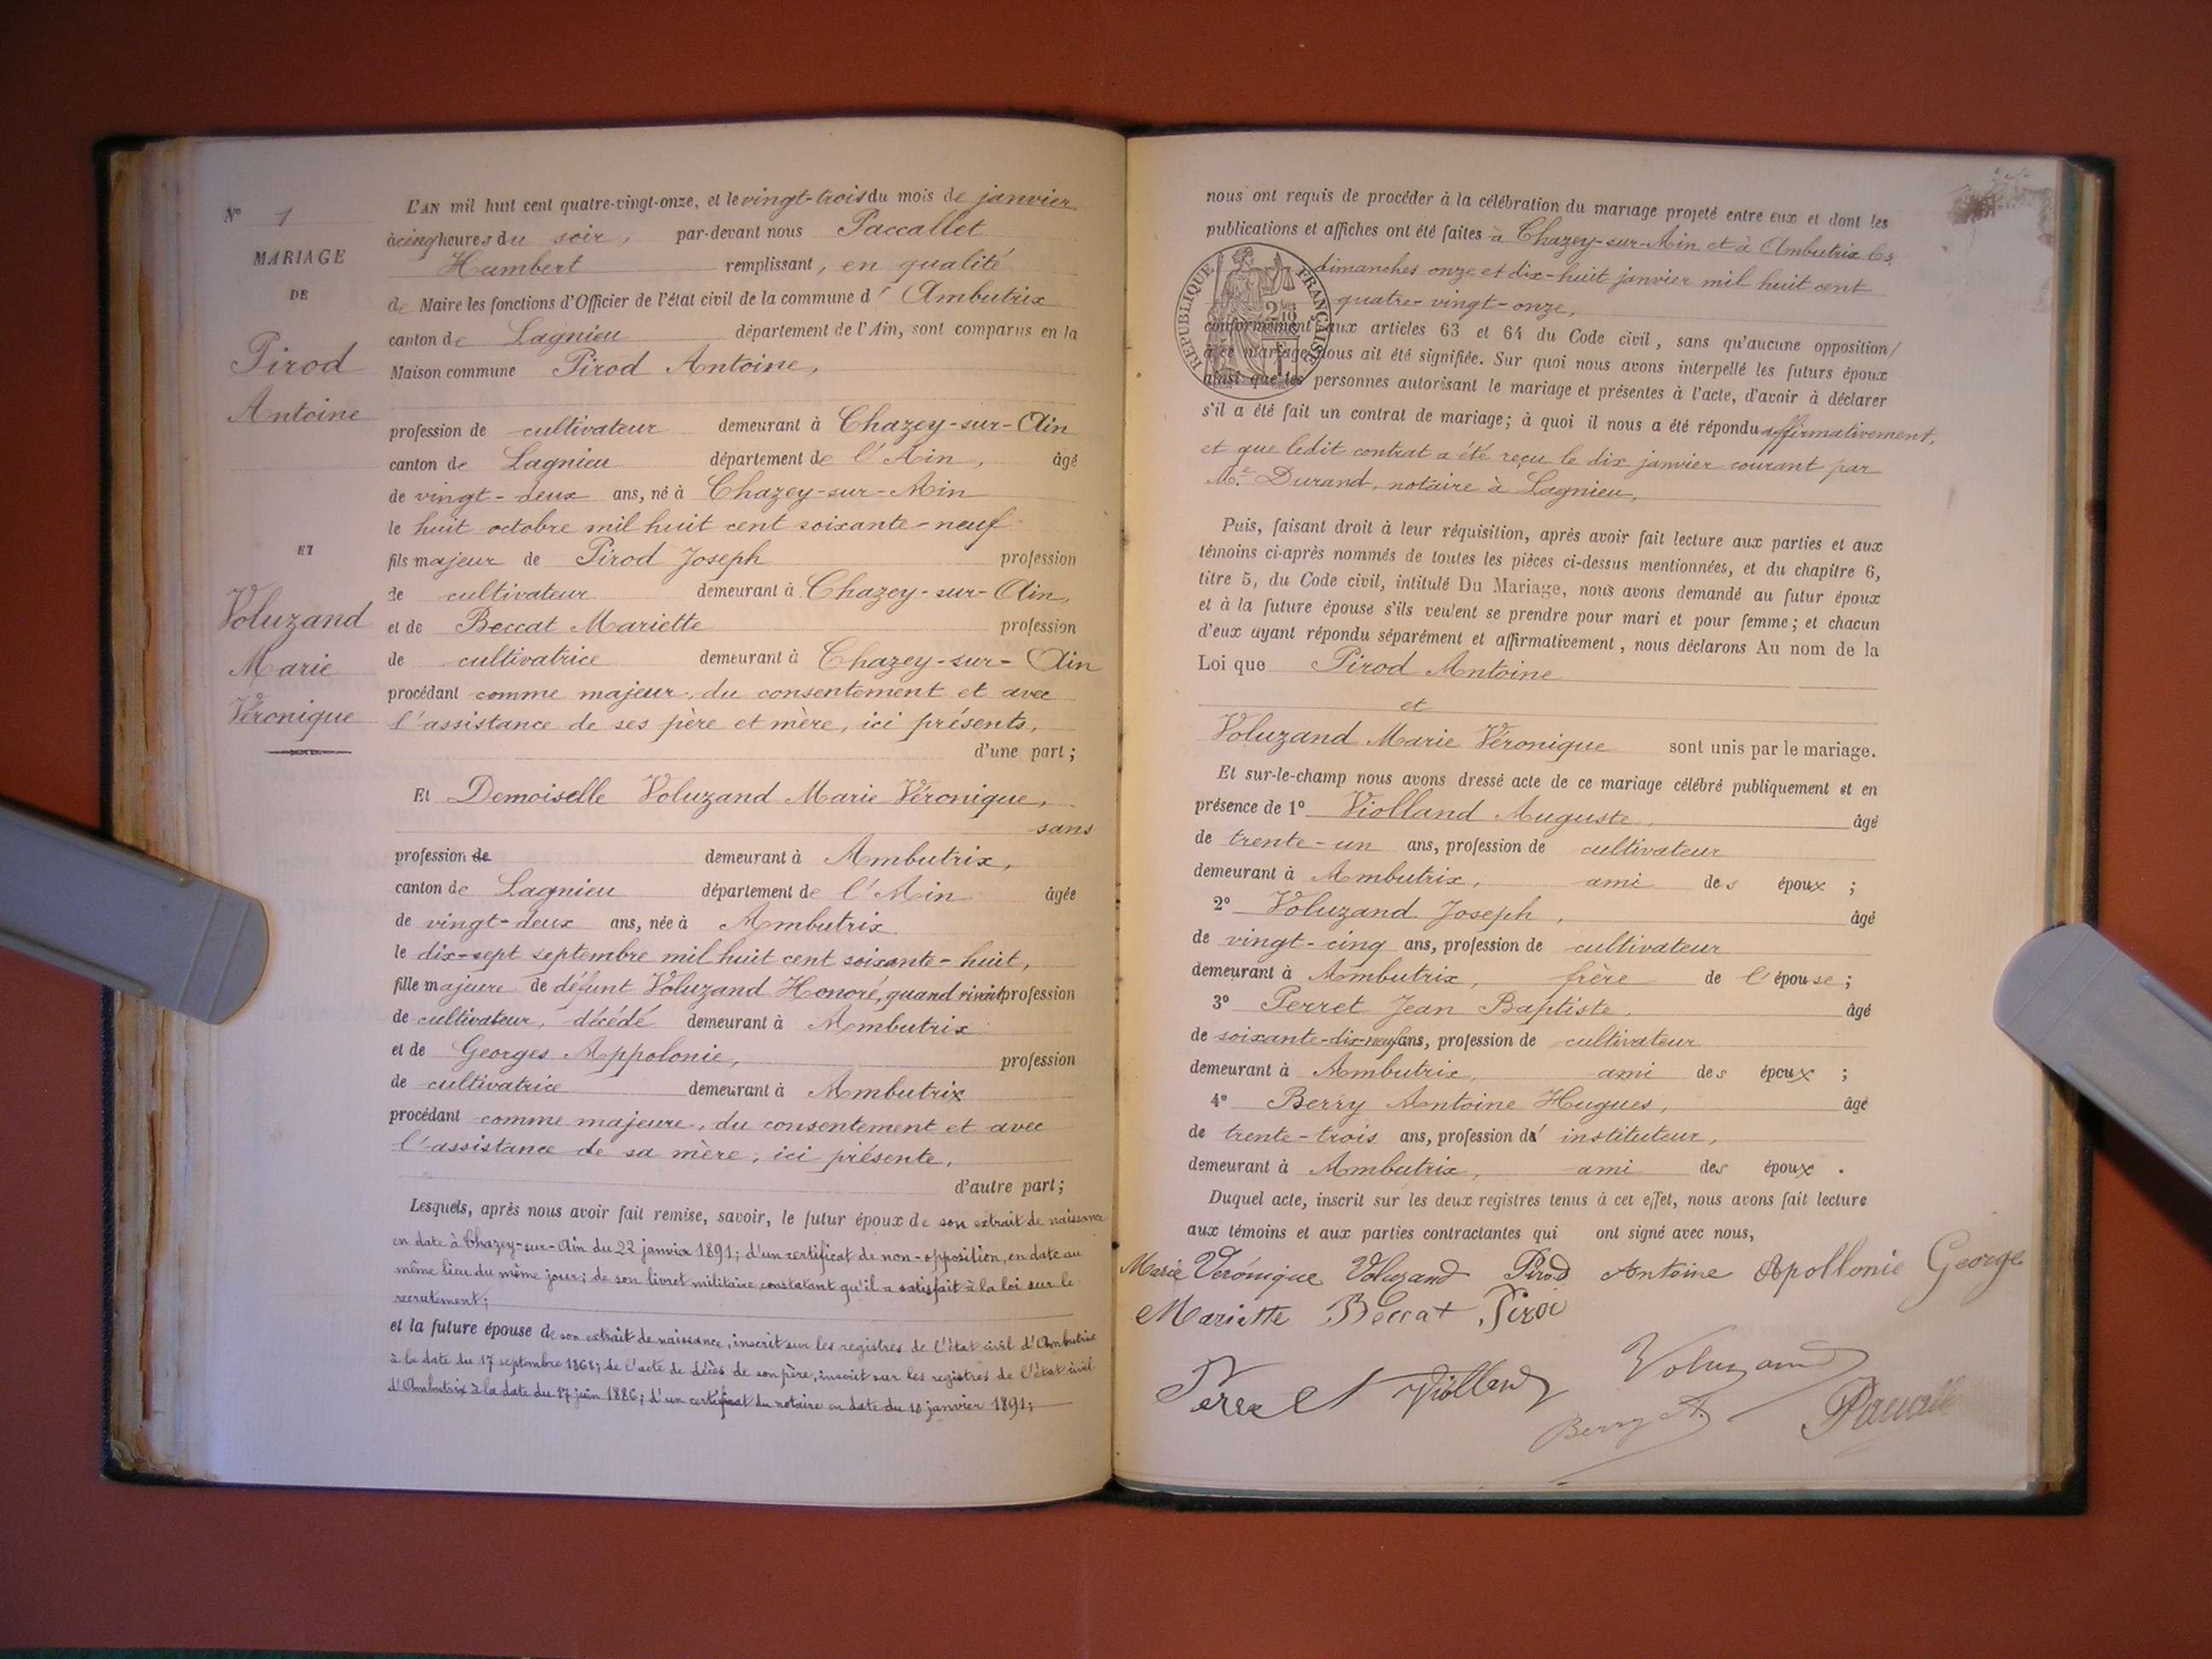 N° 1
MARIAGE
DE
Pirod
Antoine
ET
Voluzand
Marie
Véronique
L'AN mil huit cent quatre-vingt-onze, et le vingt-trois du mois de janvier
à cinq heures du soir, par-devant nous Paccallet
Humbert remplissant, en qualité
de Maire les fonctions d'Officier de l'état civil de la commune d' Ambutrix
canton de Lagnieu département de l'Ain, sont comparus en la
Maison commune Pirod Antoine,
profession de cultivateur demeurant à Chazey-sur-Ain
canton de Lagnieu département de l'Ain, âgé
de vingt-deux ans, né à Chazey-sur-Ain
le huit octobre mil huit cent soixante-neuf
fils majeur de Pirod Joseph profession
de cultivateur demeurant à Chazey-sur-Ain,
et de Beccat Mariette profession
de cultivatrice demeurant à Chazey-sur-Ain
procédant comme majeur, du consentement et avec
l'assistance de ses père et mère, ici présents,
d'une part;
Et Demoiselle Voluzand Marie Véronique,
sans
profession de demeurant à Ambutrix,
canton de Lagnieu département de l'Ain âgée
de vingt-deux ans, née à Ambutrix
le dix-sept septembre mil huit cent soixante-huit,
fille majeure de défunt Voluzand Honoré, quand vivait profession
de cultivateur, décédé demeurant à Ambutrix
et de Georges Appolonie, profession
de cultivatrice demeurant à Ambutrix
procédant comme majeure, du consentement et avec
l'assistance de sa mère, ici présente,
d'autre part;
Lesquels, après nous avoir fait remise, savoir, le futur époux de son extrait de naissance
en date à Chazey-sur-Ain du 22 janvier 1891; d'un certificat de non-opposition, en date au
même lieu du même jour; de son livret militaire constatant qu'il a satisfait à la loi sur le
recrutement;
et la future épouse de son extrait de naissance, inscrit sur les registres de l'état civil d'Ambutrix
à la date du 17 septembre 1868; de l'acte de décès de son père, inscrit sur les registres de l'état civil
d'Ambutrix à la date du 17 juin 1886; d'un certificat du notaire en date du 10 janvier 1891;
nous ont requis de procéder à la célébration du mariage projeté entre eux et dont les
publications et affiches ont été faites à Chazey-sur-Ain et à Ambutrix les
dimanches onze et dix-huit janvier mil huit cent
quatre-vingt-onze,
RÉPUBLIQUE FRANÇAISE
conformément aux articles 63 et 64 du Code civil, sans qu'aucune opposition
à ce mariage nous ait été signifiée. Sur quoi nous avons interpellé les futurs époux
ainsi que les personnes autorisant le mariage et présentes à l'acte, d'avoir à déclarer
s'il a été fait un contrat de mariage; à quoi il nous a été répondu affirmativement,
et que ledit contrat a été reçu le dix janvier courant par
Me Durand, notaire à Lagnieu,
Puis, faisant droit à leur réquisition, après avoir fait lecture aux parties et aux
témoins ci-après nommés de toutes les pièces ci-dessus mentionnées, et du chapitre 6,
titre 5, du Code civil, intitulé Du Mariage, nous avons demandé au futur époux
et à la future épouse s'ils veulent se prendre pour mari et pour femme; et chacun
d'eux ayant répondu séparément et affirmativement, nous déclarons Au nom de la
Loi que Pirod Antoine
et
Voluzand Marie Véronique sont unis par le mariage.
Et sur-le-champ nous avons dressé acte de ce mariage célébré publiquement et en
présence de 1° Violland Auguste, âgé
de trente-un ans, profession de cultivateur
demeurant à Ambutrix, ami des époux;
2° Voluzand Joseph, âgé
de vingt-cinq ans, profession de cultivateur
demeurant à Ambutrix, frère de l'épouse;
3° Perret Jean Baptiste, âgé
de soixante-dix-neuf ans, profession de cultivateur
demeurant à Ambutrix, ami des époux;
4° Berry Antoine Hugues, âgé
de trente-trois ans, profession d' instituteur,
demeurant à Ambutrix, ami des époux.
Duquel acte, inscrit sur les deux registres tenus à cet effet, nous avons fait lecture
aux témoins et aux parties contractantes qui ont signé avec nous,
Marie Véronique Voluzand Pirod Antoine Apollonie George
Mariette Beccat Pirod
Perret Violland Voluzand
Berry A.